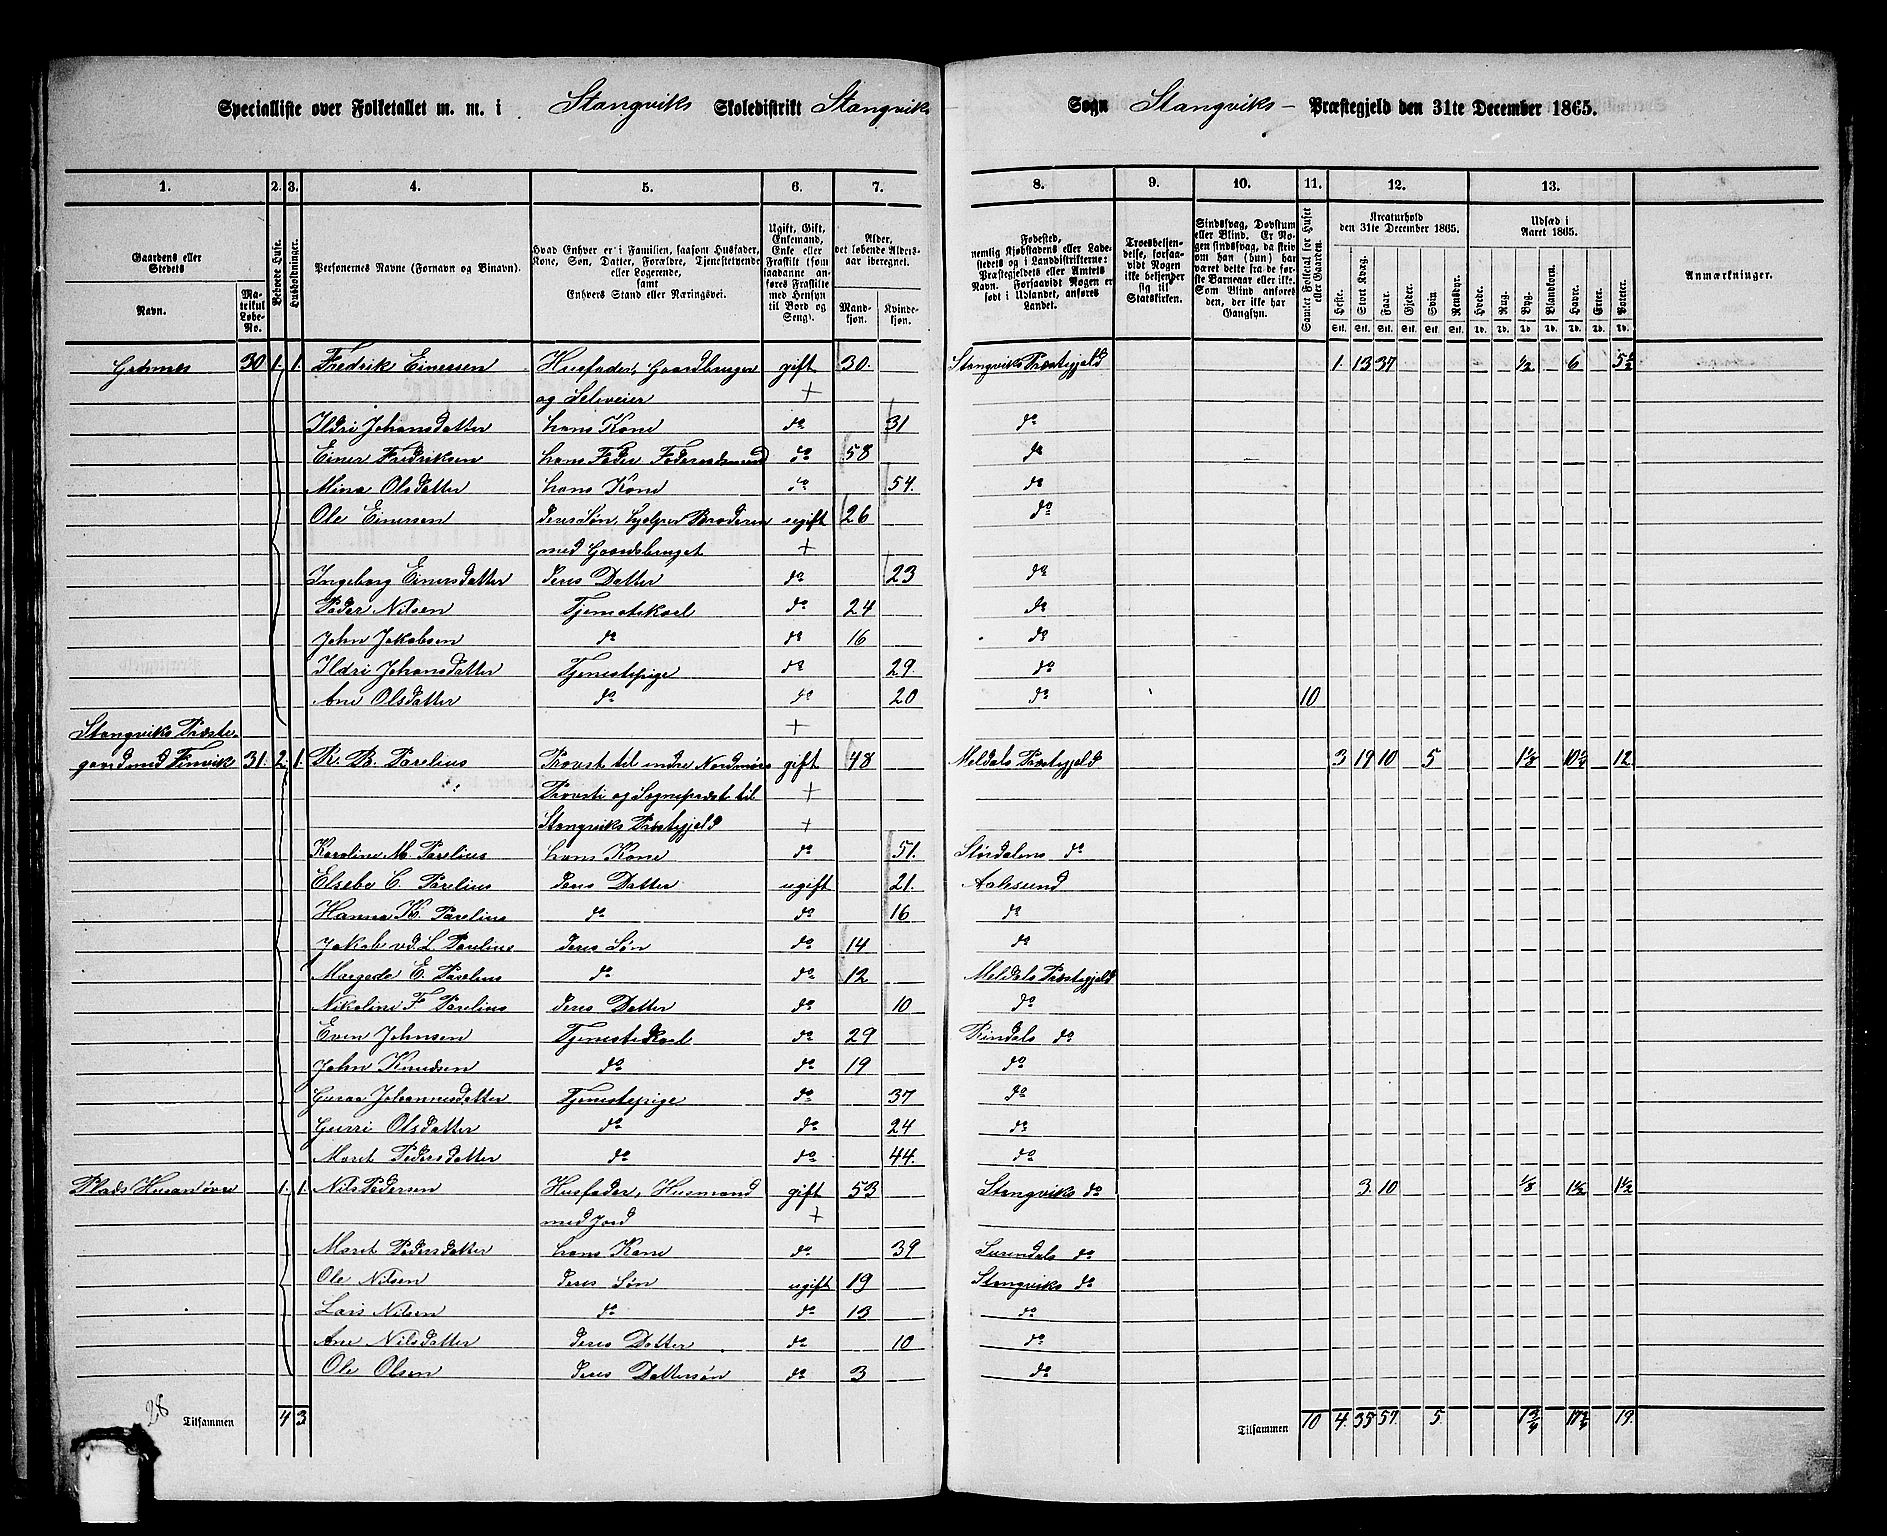 Specialliste over Folketallet m. m. i Stangviks Skoledistrikt Stangviks Sogn Stangviks Præstegjeld den 31te December 1865.
1. 2. 3. 4. 5. 6. 7. 8. 9. 10. 11. 12. 13.
Gaardens eller Stedets
Navn. Matrikul Løbe-No.
Beboede Huse.
Husholdninger.
Personernes Navne (Fornavn og Binavn).
Hvad Enhver er i Familien, saasom Husfader, Kone, Søn, Datter, Forældre, Tjenestetyende eller Logerende, samt Enhvers Stand eller Næringsvei.
Ugift, Gift, Enkemand, Enke eller Fraskilt (som saadanne anføres Fraskilte med Hensyn til Bord og Seng).
Alder, det løbende Aldersaar iberegnet.
Mandkjøn. Kvindekjøn.
Fødested, nemlig Kjøbstadens eller Ladestedets og i Landdistrikterne: Præstegjeldets eller Amtets Navn. Forsaavidt Nogen er født i Udlandet, anføres Landet.
Troesbekjendelse, forsaavidt Nogen ikke bekjender sig til Statskirken.
Sindssvag, Døvstum eller Blind. Er Nogen sindssvag, da skriv om han (hun) har været dette fra de første Barneaar eller ikke. Som Blind anføres den, der ikke har Gangsyn.
Samlet Folketal for Huset eller Gaarden.
Kreaturhold den 31te December 1865.
Heste. Stort Kvæg. Faar. Gjeder. Svin. Rensdyr.
Udsæd i Aaret 1865.
Hvede. Rug. Byg. Blandkorn. Havre. Erter. Poteter.
Anmærkninger.
30 1. 1. Fredrik Einersen Husfader, Gaardbruger gift 30. Stangviks Præstegjeld 1. 13 37 1/2 6 5 1/2
og Seleveier +
Ildri Johansdatter hans Kone do 31 do
Einer Fredriksen hans Fader Føderaadsmand do 58 do
Mina Olsdatter hans Kone do 54. do
Ole Einersen deres Søn, hjelper Broderen ugift 26 do
med Gaardsbruget +
Ingeborg Einersdatter deres Datter do 23 do
Peder Nilsen Tjenestekarl do 24 do
John Jakobsen do do 16 do
Ildri Johansdatter Tjenestepige do 29. do
Ane Olsdatter do do 20 do 10
Stangviks Præste- +
gaard med Finvik 31. 2. 1. R. B. Parelius Provst til indre Nordmøre gift 48 Meldals Præstegjeld 3 19 10 5 12
Provsti og Sognepræst til +
Stangviks Præstegjeld +
Karoline M. Parelius hans Kone do 51. Størdalens do
Elsebe C. Parelius deres Datter ugift 21. Aalesund
Hanna K. Parelius do do 16 do
Jakob v.d. L. Parelius deres Søn do 14 do
E. Parelius do do 12 Meldals Præstegjeld
Nikoline F Parelius deres Datter do 10 do
Even Johnsen Tjenestekarl do 29 Rindals do
John Knudsen do do 19 do
Guroa Johannesdatter Tjenestepige do 37 do
Gurri Olsdatter do do 24 do
Maret Pedersdatter do do 44. do
Plads 1. 1. Nils Pedersen Husfader, Husmand gift 53 Stangviks do 3. 10 1/8 1 1/2 1 1/2
med Jord +
Maret Pedersdatter hans Kone do 39 Surendals do
Ole Nilsen deres Søn ugift 19 Stangviks do
Lars Nilsen do do 13 do
Ane Nilsdatter deres Datter do 10 do
Ole Olsen deres Dattersøn do 3 do
28
Tilsammen 4 3 Tilsammen 10 4. 35 57. 5 19.